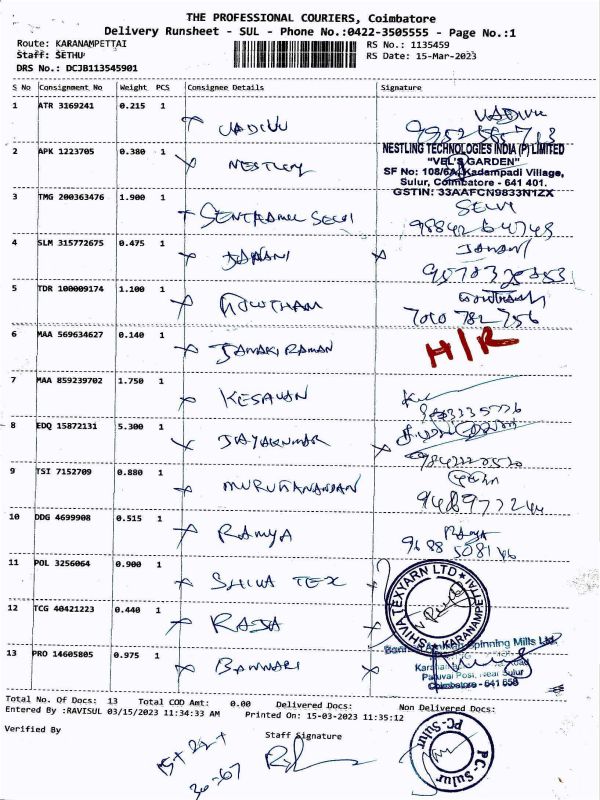 THE PROFESSIONAL COURIERS, Coimbatore
Delivery Runsheet - SUL - Phone No.:0422-3505555 - Page No.:1
Route: KARANAMPETTAI RS No.: 1135459
Staff: SETHU RS Date: 15-Mar-2023
DRS No.: DCJB113545901
S No Consignment No Weight PCS Consignee Details Signature
1 ATR 3169241 0.215 1 VADIVU VADIVU
2 APK 1223705 0.380 1 NESTLING TECHNOLOGIES INDIA (P) LIMITED
"VEL'S GARDEN"
SF No: 108/6A, Kadampadi Village,
Sulur, Coimbatore - 641 401.
GSTIN: 33AAFCN9833N1ZX
3 TMG 200363476 1.900 1 SELVI SELVI
4 SLM 315772675 0.475 1 JANANI
5 TDR 100009174 1.100 1 GOWTHAM
7010 782 756
6 MAA 569634627 0.140 1 JANAKI RAMAN H/R
7 MAA 859239702 1.750 1 KESAVAN
8 EDQ 15872131 5.300 1 JAYAKUMAR
9 TSI 7152709 0.880 1 MURUGANANDAN
10 DDG 4699908 0.515 1 RAMYA Ramya
11 POL 3256064 0.900 1 SHIVA TEX SHIVA TEXYARN LTD KARANAMPETTAI
12 TCG 40421223 0.440 1 RAJA
13 PRO 14605805 0.975 1 BANNARI Spinning Mills Ltd.
Road
Paruvai Post, Near Sulur
Coimbatore - 641 658
Total No. Of Docs: 13 Total COD Amt: 0.00 Delivered Docs: Non Delivered Docs:
Entered By :RAVISUL 03/15/2023 11:34:33 AM Printed On: 15-03-2023 11:35:12
Verified By Staff Signature PC-Sulur PC-Sulur
15 + 22 +
30 - 67